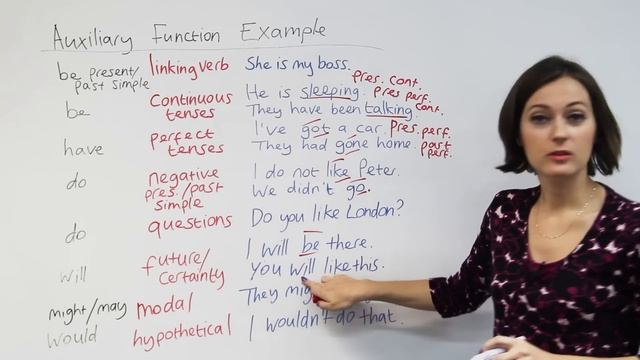 Auxiliary Function Example
be present/ past simple linking verb She is my boss.
be continuous tenses He is sleeping. pres. cont.
They have been talking. pres perf. cont.
have perfect tenses I've got a car. pres. perf.
They had gone home. past perf.
do negative pres./past simple I do not like Peter.
We didn't go.
do questions Do you like London?
will future/ certainty I will be there.
You will like this.
might/may modal They
would hypothetical I wouldn't do that.